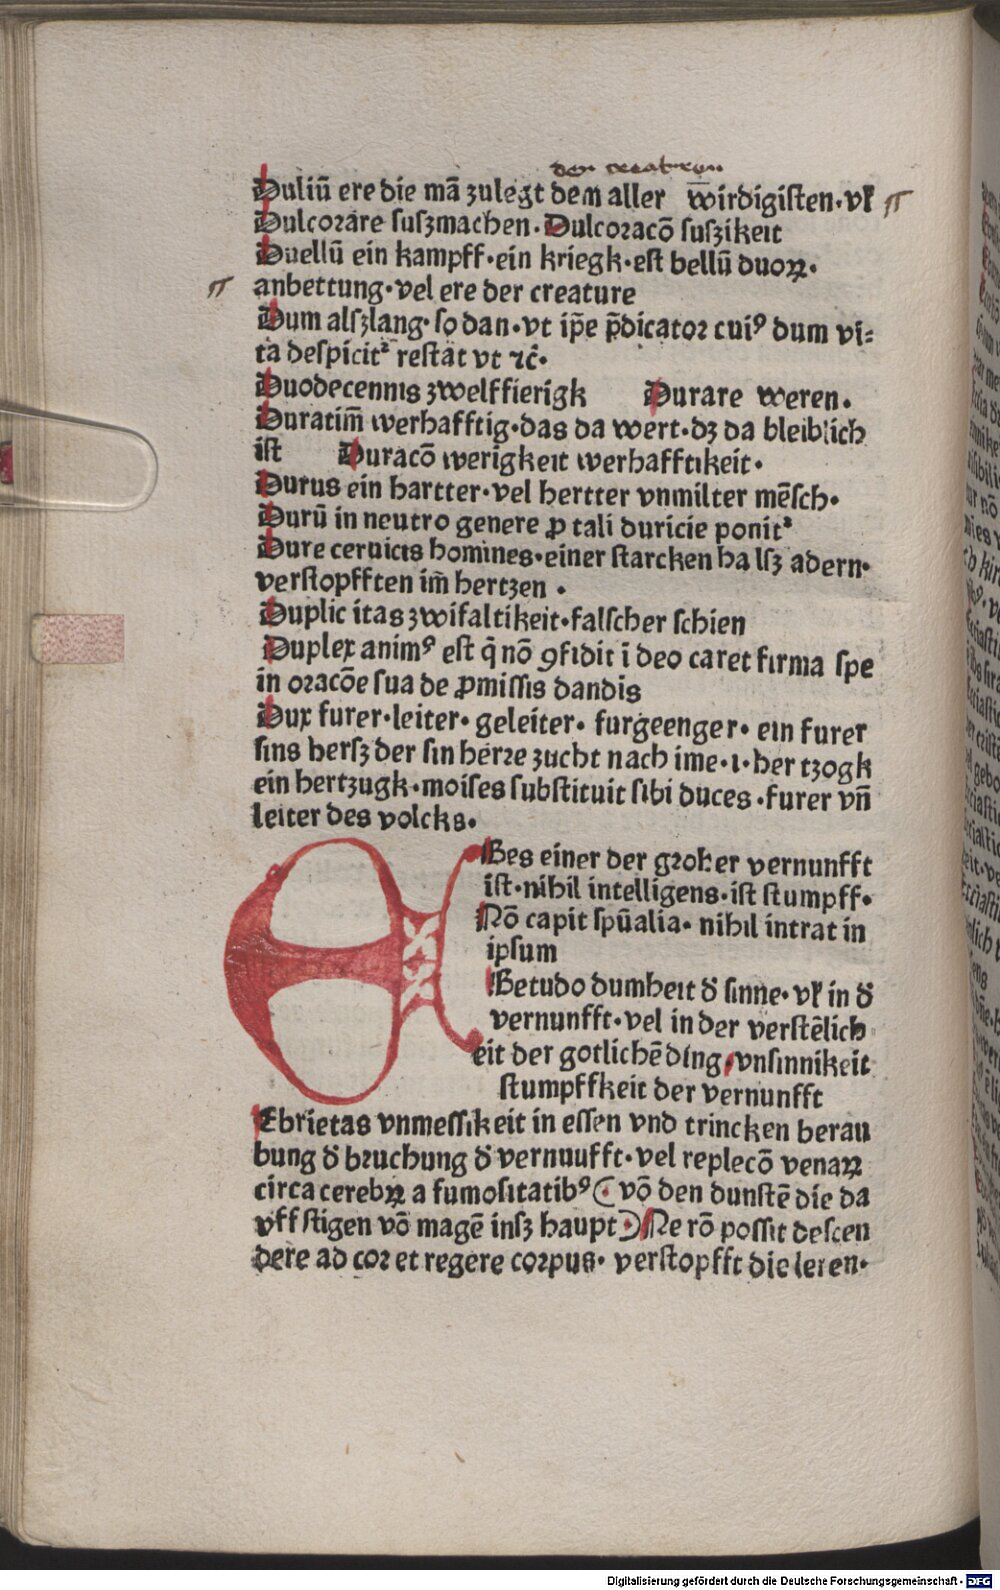 der creaturen
Duliū ere die mā zulegt dem aller w̄irdigisten·vł
Dulcorare suſzmachen·Dulcoracō suſzikeit
Duellū ein kampff·ein kriegk·est bellū duoꝝ·
anbettung·vel ere der creature
Dum alſzlang·so dan·vt ip̄e p̄dicator cuiꝰ dum vi⸗
ta despicit᷑ restat vt ⁊c̄·
Duodecennis zwelffierigk Durare weren·
Duratim̄ werhafftig·das da wert·dz da bleiblich
ist Duracō werigkeit werhafftikeit·
Durus ein hartter·vel hertter vnmilter mēsch·
Durū in neutro genere ꝓ tali duricie ponit᷑
Dure ceruicis homines·einer starcken ha lſz adern·
verstopfften im̄ hertzen ·
Duplic itas zwifaltikeit·falscher schien
Duplex animꝰ est q̄ nō ꝯfidit ī deo caret firma spe
in oracōe sua de ꝓmissis dandis
Dux furer·leiter· geleiter· furgeenger· ein furer
sins herſz der sin herre zucht nach ime·ı·her tzogk
ein hertzugk·moises substituit sibi duces·furer vn̄
leiter des volcks·
E
Hbes einer der grober vernunfft
ist·nihil intelligens·ist stumpff·
Nō capit spūalia· nihil intrat in
ipsum
Hbetudo dumheit đ sinne·vł in đ
vernunfft·vel in der verstēlich
eit der gotlichē ding·vnsinnikeit
stumpffkeit der vernunfft
Ebrietas vnmessikeit in essen vnd trincken berau
bung đ bruchung đ vernuufft·vel replecō venaꝝ
circa cerebꝝ a fumositatibꝰ (·vō den dunstē die da
vff stigen vō magē inſz haupt·) Ne rō possit descen
dere ad cor et regere corpus· verstopfft die leren·
Digitalisierung gefördert durch die Deutsche Forschungsgemeinschaft - DFG